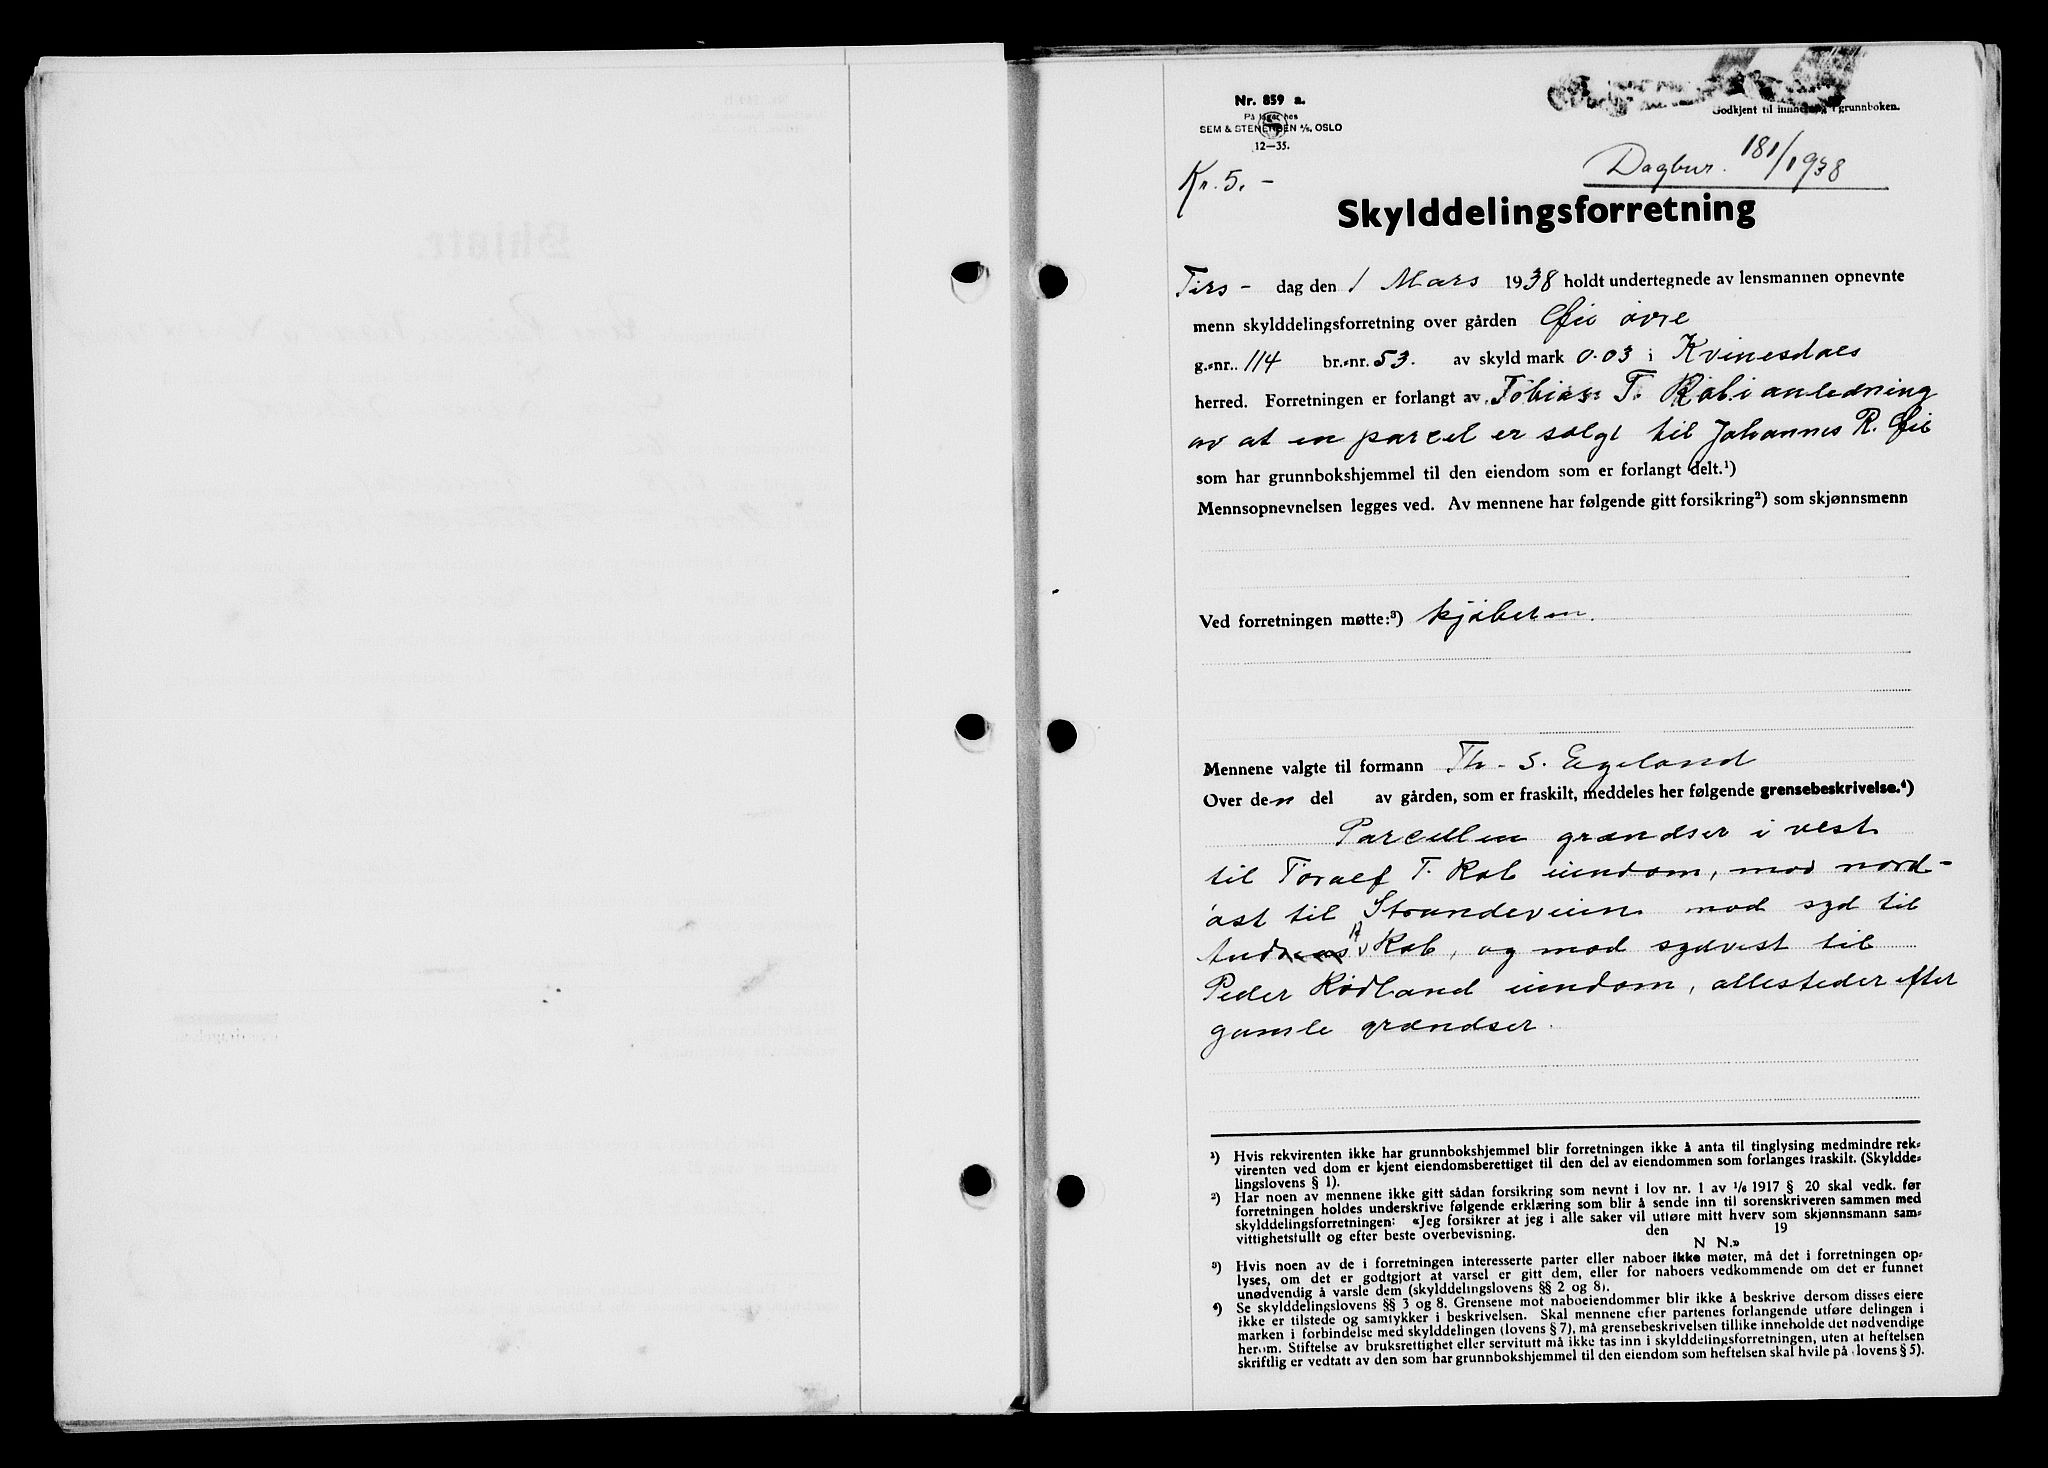 Nr. 859 a.
På lager hos
SEM & STENERSEN A/S, OSLO
12—35.
Godkjent til innhefting i grunnboken.
Dagbnr. 181/1938
Kr. 5. -
Skylddelingsforretning
Tirs - dag den 1 Mars 1938 holdt undertegnede av lensmannen opnevnte
menn skylddelingsforretning over gården Øie øvre
g.-nr. 114 br.-nr. 53. av skyld mark 0.03 i Kvinesdals
herred. Forretningen er forlangt av Tobias T. Rob i anledning
av at en parcel er solgt til Johannes R. Øie
som har grunnbokshjemmel til den eiendom som er forlangt delt.¹)
Mennsopnevnelsen legges ved. Av mennene har følgende gitt forsikring²) som skjønnsmenn
Ved forretningen møtte:³) kjøberen.
Mennene valgte til formann Th. S. Egeland
Over den del av gården, som er fraskilt, meddeles her følgende grensebeskrivelse.⁴)
Parcellen grændser i vest
til Toralf T. Rob eiendom, mod nord-
øst til Strandeveien mod syd til
Rob, og mod sydvest til
Peder Rødland eiendom, allesteder efter
gamle grændser.
¹) Hvis rekvirenten ikke har grunnbokshjemmel blir forretningen ikke å anta til tinglysing medmindre rek-
virenten ved dom er kjent eiendomsberettiget til den del av eiendommen som forlanges fraskilt. (Skyldde-
lingslovens § 1).
²) Har noen av mennene ikke gitt sådan forsikring som nevnt i lov nr. 1 av 1/6 1917 § 20 skal vedk. før
forretningen holdes underskrive følgende erklæring som blir å sende inn til sorenskriveren sammen med
skylddelingsforretningen: «Jeg forsikrer at jeg i alle saker vil utføre mitt hverv som skjønnsmann sam-
vittighetsfullt og efter beste overbevisning. den 19
N N.»
³) Hvis noen av de i forretningen interesserte parter eller naboer ikke møter, må det i forretningen op-
lyses, om det er godtgjort at varsel er gitt dem, eller for naboers vedkommende om det er funnet
unødvendig å varsle dem (skylddelingslovens §§ 2 og 8).
⁴) Se skylddelingslovens §§ 3 og 8. Grensene mot naboeiendommer blir ikke å beskrive dersom disses eiere
ikke er tilstede og samtykker i beskrivelsen. Skal mennene efter partenes forlangende utføre delingen i
marken i forbindelse med skylddelingen (lovens § 7), må grensebeskrivelsen tillike inneholde det nødvendige
herom. Stiftelse av bruksrettighet eller servitutt må ikke tas inn i skylddelingsforretningen, uten at heftelsen
skriftlig er vedtatt av den som har grunnbokshjemmel til den eiendom som heftelsen skal hvile på (lovens § 5).